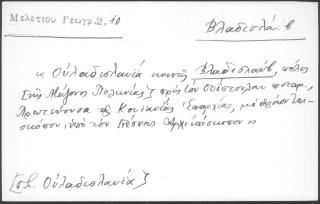 Μελετίου Γεωγρ. 2, 10
Βλαδισλά.. β
« Οὐλαδισλαυία κοινῶς Βλαδισλαύβ, πόλις
[τῆς Μείζονος Πολωνίας] πρὸς τὸν Οὐΐστουλαν ποταμ.,
Πρωτεύουσα τῆς Κουϊαυίας Ἐπαρχίας, μὲ θρόνον Ἐπι-
σκόπου, ὑπὸ τὸν Γνέσνης Ἀρχιεπίσκοπον »
[σ.λ. Οὐλαδισλαυία]